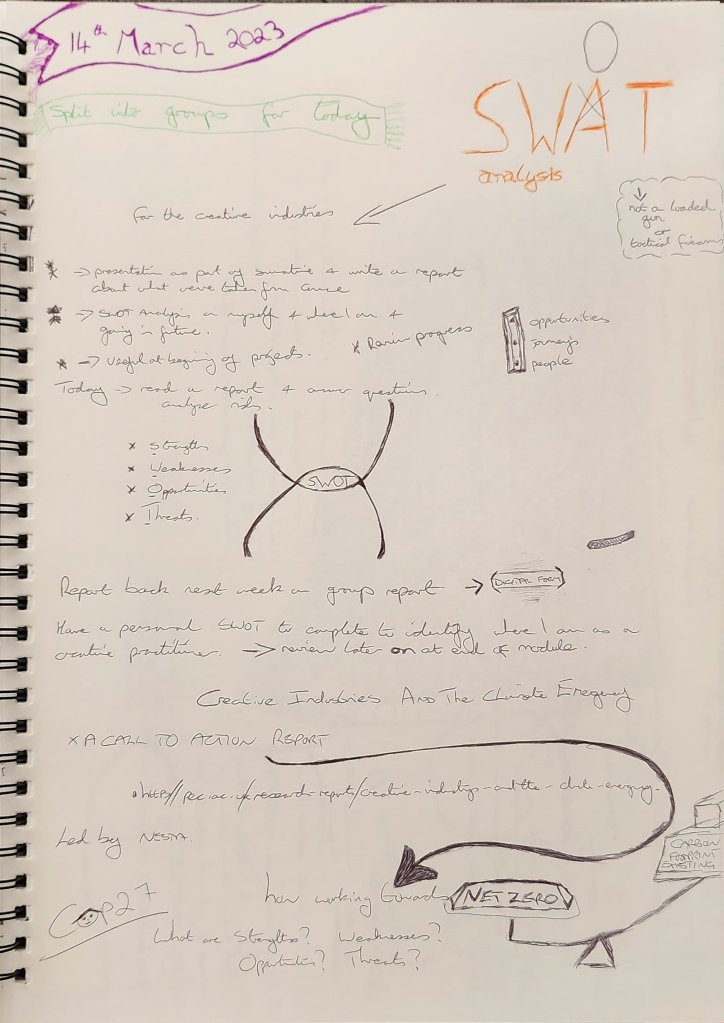 14th March 2023
Split into groups for today
O
SWAT
analysis
for the creative industries
not a loaded
gun.
or
tactical firearms
* → presentation as part of summative + write a report
about what we've taken from
* → SWOT Analysis on myself + where I am +
going in future.
* Review progress
* → useful at beginning of projects.
opportunities
journeys
people
Today → read a report + answer questions.
analyse risks.
x Strengths
x Weaknesses
x Opportunities
x Threats.
SWOT
Report back next week on group report → DIGITAL FORM
Have a personal SWOT to complete to identify where I am as a
creative practitioner. → review later on at end of module.
Creative Industries And The Climate Emergency
x A CALL TO ACTION REPORT
• http//pec.ac.uk/research-reports/creative-industrys-and-the-climate-emergency.
Led by NESTA.
CARBON
FOOTPRINT
EXISTING
COP27
how working towards NET ZERO
What are Strengths? Weaknesses?
Opportunities? Threats?